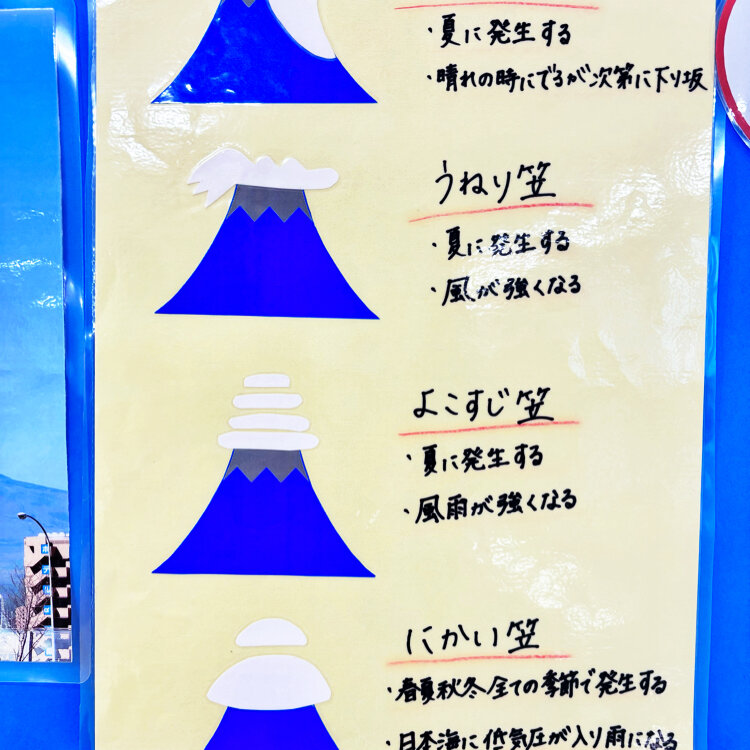 ・夏に発生する
・晴れの時にでるが次第に下り坂
うねり笠
・夏に発生する
・風が強くなる
よこすじ笠
・夏に発生する
・風雨が強くなる
にかい笠
・春夏秋冬全ての季節で発生する
・日本海に低気圧が入り雨になる